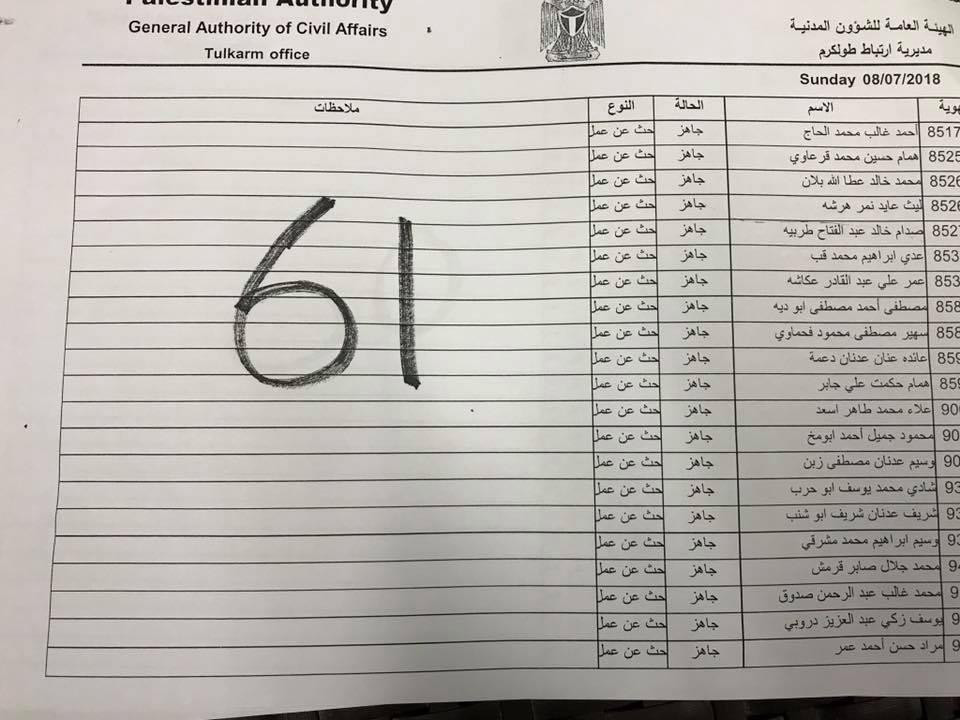 Palestinian Authority
General Authority of Civil Affairs
Tulkarm office
الهيئة العامة للشؤون المدنية
مديرية ارتباط طولكرم
Sunday 08/07/2018
الاسم الحالة النوع ملاحظات
8517 أحمد غالب محمد الحاج جاهز حث عن عمل
8525 همام حسين محمد قرعاوي جاهز حث عن عمل
8526 محمد خالد عطا الله بلان جاهز حث عن عمل
8526 ليث عايد نمر هرشه جاهز حث عن عمل
8527 صدام خالد عبد الفتاح طربيه جاهز حث عن عمل
853 عدي ابراهيم محمد قب جاهز حث عن عمل
853 عمر علي عبد القادر عكاشه جاهز حث عن عمل
858 مصطفى أحمد مصطفى ابو ديه جاهز حث عن عمل
858 سهير مصطفى محمود فحماوي جاهز حث عن عمل
859 عائده عنان عدنان دعمة جاهز حث عن عمل
859 همام حكمت علي جابر جاهز حث عن عمل
900 علاء محمد طاهر اسعد جاهز حث عن عمل
90 محمود جميل أحمد ابومخ جاهز حث عن عمل
90 وسيم عدنان مصطفى زبن جاهز حث عن عمل
93 شادي محمد يوسف ابو حرب جاهز حث عن عمل
93 شريف عدنان شريف ابو شنب جاهز حث عن عمل
93 وسيم ابراهيم محمد مشرقي جاهز حث عن عمل
94 محمد جلال صابر قرمش جاهز حث عن عمل
9 محمد غالب عبد الرحمن صدوق جاهز حث عن عمل
9 يوسف زكي عبد العزيز دروبي جاهز حث عن عمل
9 مراد حسن أحمد عمر جاهز حث عن عمل
61